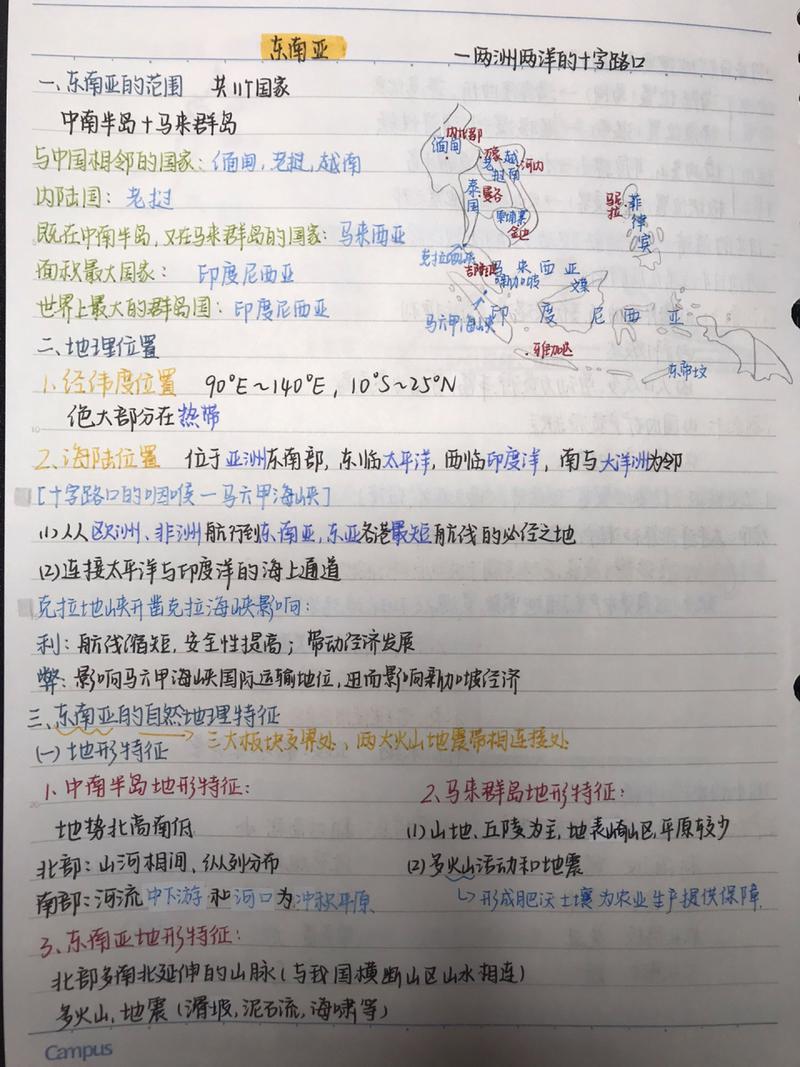 东南亚 —两洲两洋的十字路口
一、东南亚的范围 共11个国家
中南半岛+马来群岛
与中国相邻的国家:缅甸,老挝,越南
内陆国:老挝
既在中南半岛,又在马来群岛的国家:马来西亚
面积最大国家: 印度尼西亚
世界上最大的群岛国:印度尼西亚
内比都
缅甸
万象
老挝
越南
河内
泰国
曼谷
柬埔寨
金边
马尼拉
菲律宾
克拉地峡
吉隆坡
马来西亚
新加坡
文莱
马六甲海峡
印度尼西亚
雅加达
东帝汶
二、地理位置
1.经纬度位置 90°E~140°E,10°S~25°N
绝大部分在热带
2.海陆位置 位于亚洲东南部,东临太平洋,西临印度洋,南与大洋洲为邻
[十字路口的咽喉—马六甲海峡]
(1)从欧洲、非洲航行到东南亚,东亚各港最短航线的必经之地
(2)连接太平洋与印度洋的海上通道
克拉地峡开凿克拉海峡影响:
利:航线缩短,安全性提高;带动经济发展
弊:影响马六甲海峡国际运输地位,进而影响新加坡经济
三、东南亚的自然地理特征
三大板块交界处、两大火山地震带相连接处
(一)地形特征
1.中南半岛地形特征:
地势北高南低
北部:山河相间、纵列分布
南部:河流中下游和河口为冲积平原
2.马来群岛地形特征:
(1)山地、丘陵为主,地表崎岖,平原较少
(2)多火山活动和地震
形成肥沃土壤为农业生产提供保障
3.东南亚地形特征:
北部多南北延伸的山脉(与我国横断山区山水相连)
多火山,地震(滑坡,泥石流,海啸等)
Campus